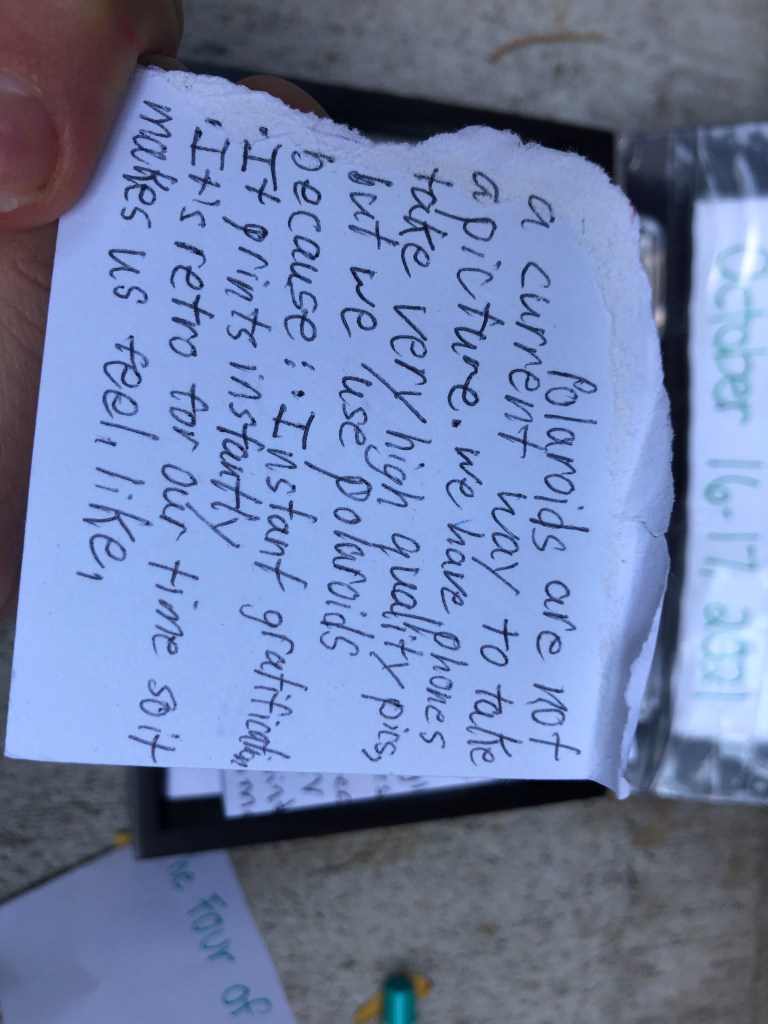 Polaroids are not
a current way to take
a picture. we have phones
take very high quality pics,
but we use polaroids
because: • Instant gratification
• It prints instantly
• It's retro for our time so it
makes us feel, like,
October 16-17, 2021
Four of